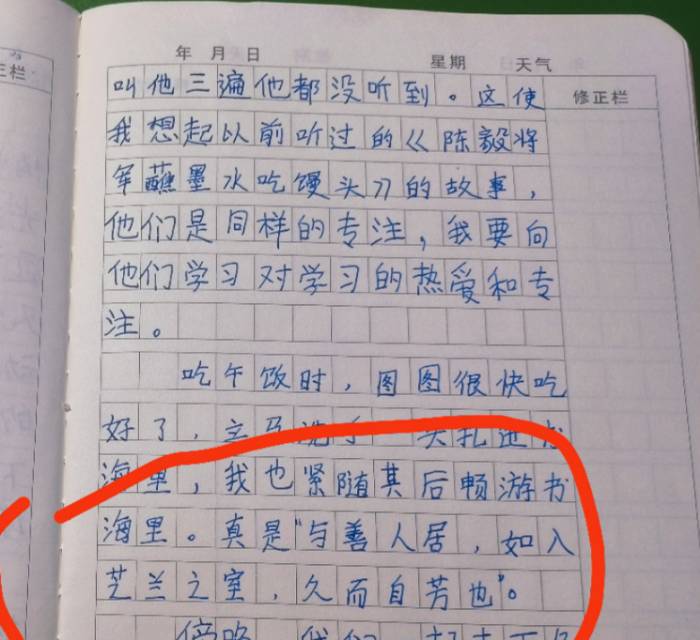 年 月 日 星期 天气
正栏 修正栏
叫他三遍他都没听到。这使
我想起以前听过的《陈毅将
军蘸墨水吃馒头》的故事,
他们是同样的专注,我要向
他们学习对学习的热爱和专
注。
吃午饭时,图图很快吃
好了,立马洗手 一头扎进书
海里,我也紧随其后畅游书
海里。真是“与善人居,如入
芝兰之室,久而自芳也”。
傍晚 我们